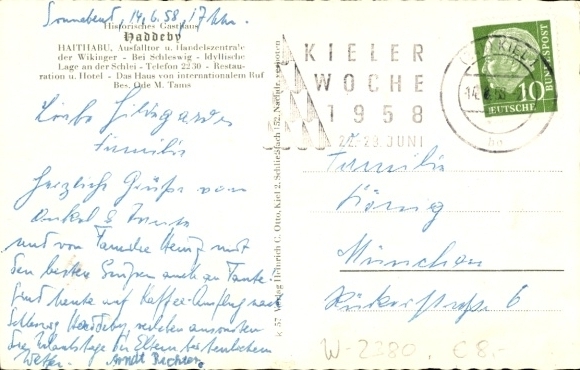 Sonnabend, 14.6.58, 17 Uhr.
Historisches Gasthaus
Haddeby
HAITHABU, Ausfalltor u. Handelszentrale
der Wikinger - Bei Schleswig - Idyllische
Lage an der Schlei - Telefon 2230 - Restau-
ration u. Hotel - Das Haus von internationalem Ruf
Bes. Ode M. Tams
Liebe
Familie
Herzliche Grüße von
Onkel & Tante
und von Familie Heinz mit
den besten Grüßen auch an Tante.
Sind heute auf Kaffee-Ausflug nach
Schleswig Haddeby,
die Urlaubstage
Wetter.
k 57 Verlag Heinrich C. Otto, Kiel 2, Schließfach 152, Nachdr. verboten
KIELER
WOCHE
1958
22.-29. JUNI
KIEL
14.6.58
10
DEUTSCHE
BUNDESPOST
Familie
König
München
Rückertstraße 6
W-2380. € 8,-